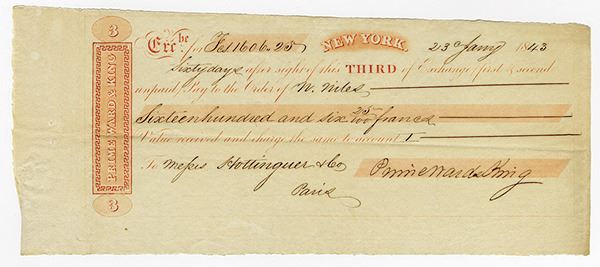 3
PRIME WARD & KING
3
Excbe for Fcs 1606.25 NEW YORK, 23d Jany 1843
Sixty days after sight of this THIRD of Exchange, first & second
unpaid, Pay to the Order of W. Niles
Sixteen hundred and six 25/100 francs
Value received and charge the same to account
To Messrs Hottinguer & Co Prime Ward & King
Paris